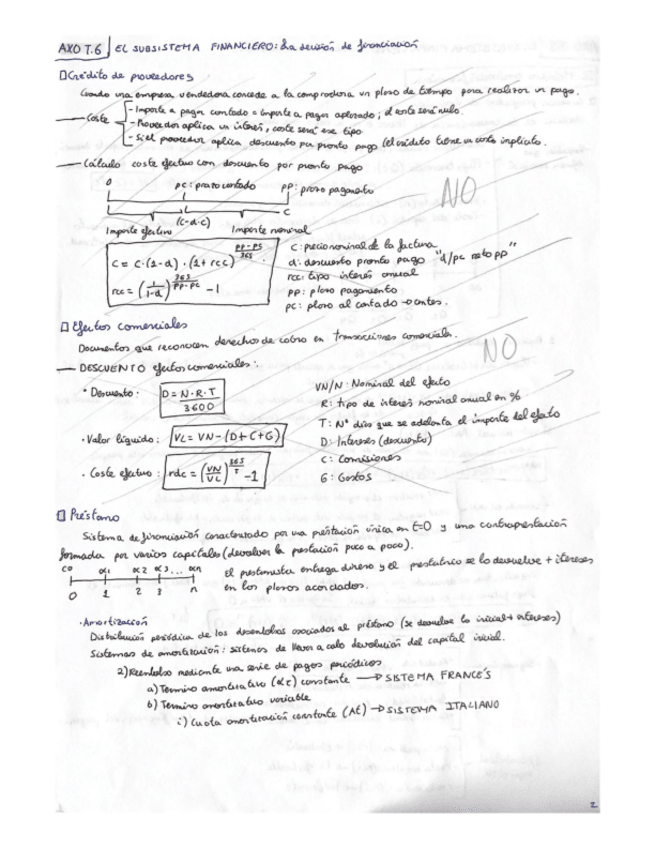 AXO T.6 EL SUBSISTEMA FINANCIERO: La decisión de financiación
Crédito de proveedores
Cuando una empresa vendedora concede a la compradora un plazo de tiempo para realizar un pago.
— Coste
- Importe a pagar contado = importe a pagar aplazado; el coste será nulo.
- Proveedor aplica un interés, coste será ese tipo
- Si el proveedor aplica descuento por pronto pago (el crédito tiene un coste implícito.
— Cálculo coste efectivo con descuento por pronto pago
0 pc: plazo contado pp: plazo pagamento
NO
(C-d·C) C
Importe efectivo Importe nominal
C = C·(1-d)·(1+rcc)^(pp-pc/365)
rcc = (1/1-d)^(365/pp-pc) - 1
C: precio nominal de la factura
d: descuento pronto pago "d/pc neto pp"
rcc: tipo interés anual
pp: plazo pagamento
pc: plazo al contado → antes.
Efectos comerciales
Documentos que reconocen derechos de cobro en transacciones comerciales.
NO
— DESCUENTO efectos comerciales:
• Descuento: D = N·R·T / 3600
• Valor líquido: VL = VN - (D+C+G)
• Coste efectivo: rdc = (VN/VL)^(365/T) - 1
VN/N: Nominal del efecto
R: tipo de interés nominal anual en %
T: Nº días que se adelanta el importe del efecto
D: Intereses (descuento)
C: Comisiones
G: Gastos
Préstamo
Sistema de financiación caracterizado por una prestación única en t=0 y una contraprestación
formada por varios capitales (devolver la prestación poco a poco).
C0 α1 α2 α3... αn
0 1 2 3 n
El prestamista entrega dinero y el prestatario se lo devuelve + intereses
en los plazos acordados.
• Amortización
Distribución periódica de los desembolsos asociados al préstamo (se devuelve lo inicial + intereses)
Sistemas de amortización: sistemas de llevar a cabo devolución del capital inicial.
2) Reembolso mediante una serie de pagos periódicos
a) Término amortizativo (αt) constante → SISTEMA FRANCÉS
b) Término amortizativo variable
i) Cuota amortización constante (At) → SISTEMA ITALIANO
2